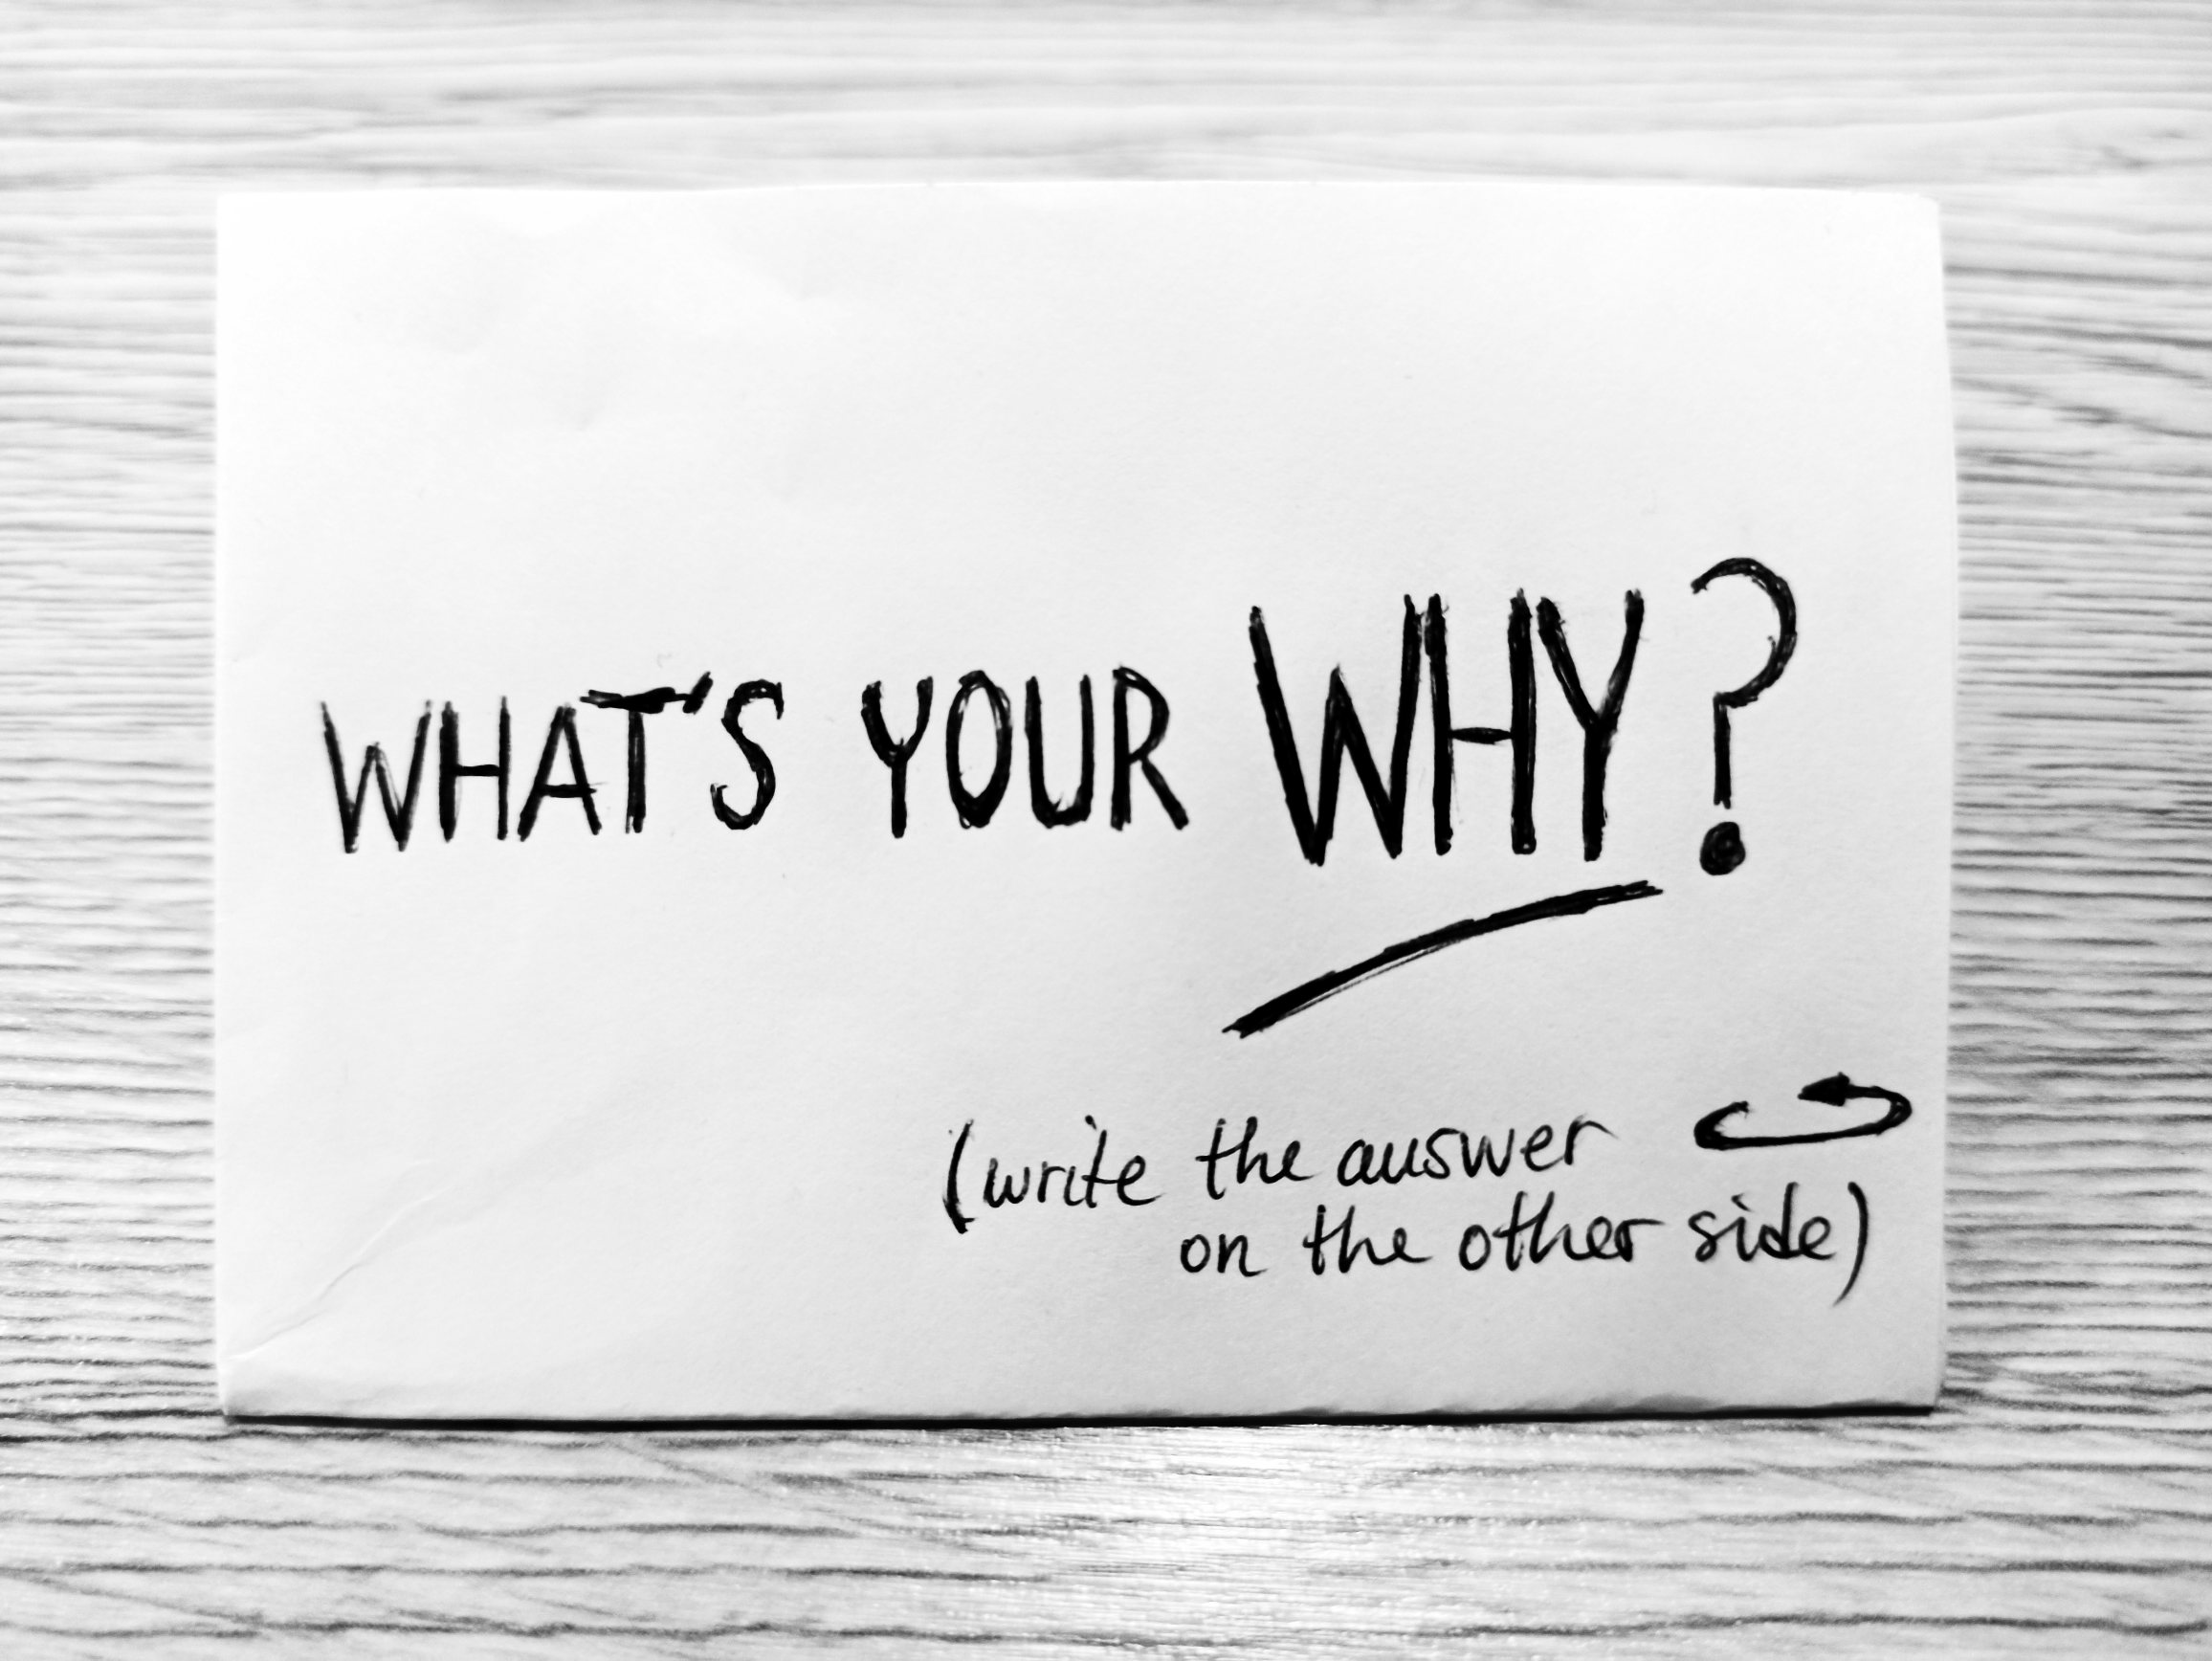 WHAT'S YOUR WHY?
(write the answer
on the other side)